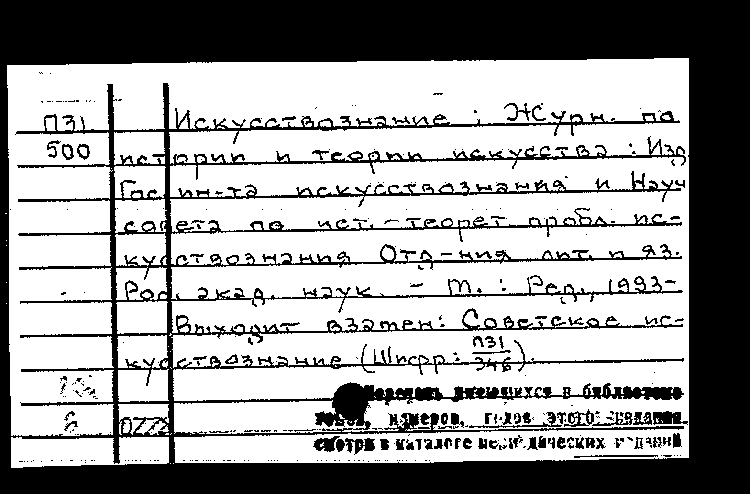 П31 Искусствознание : Журн. по
500 истории и теории искусства : Изд.
Гос. ин-та искусствознания и Науч.
совета по ист.-теорет. пробл. ис-
кусствознания Отд-ния лит. и яз.
Рос. акад. наук. - М. : Ред., 1993-
Выходит взамен: Советское ис-
кусствознание (Шифр: П31/346).
Перечень имеющихся в библиотеке
томов, номеров, годов этого издания
6
смотри в каталоге периодических изданий